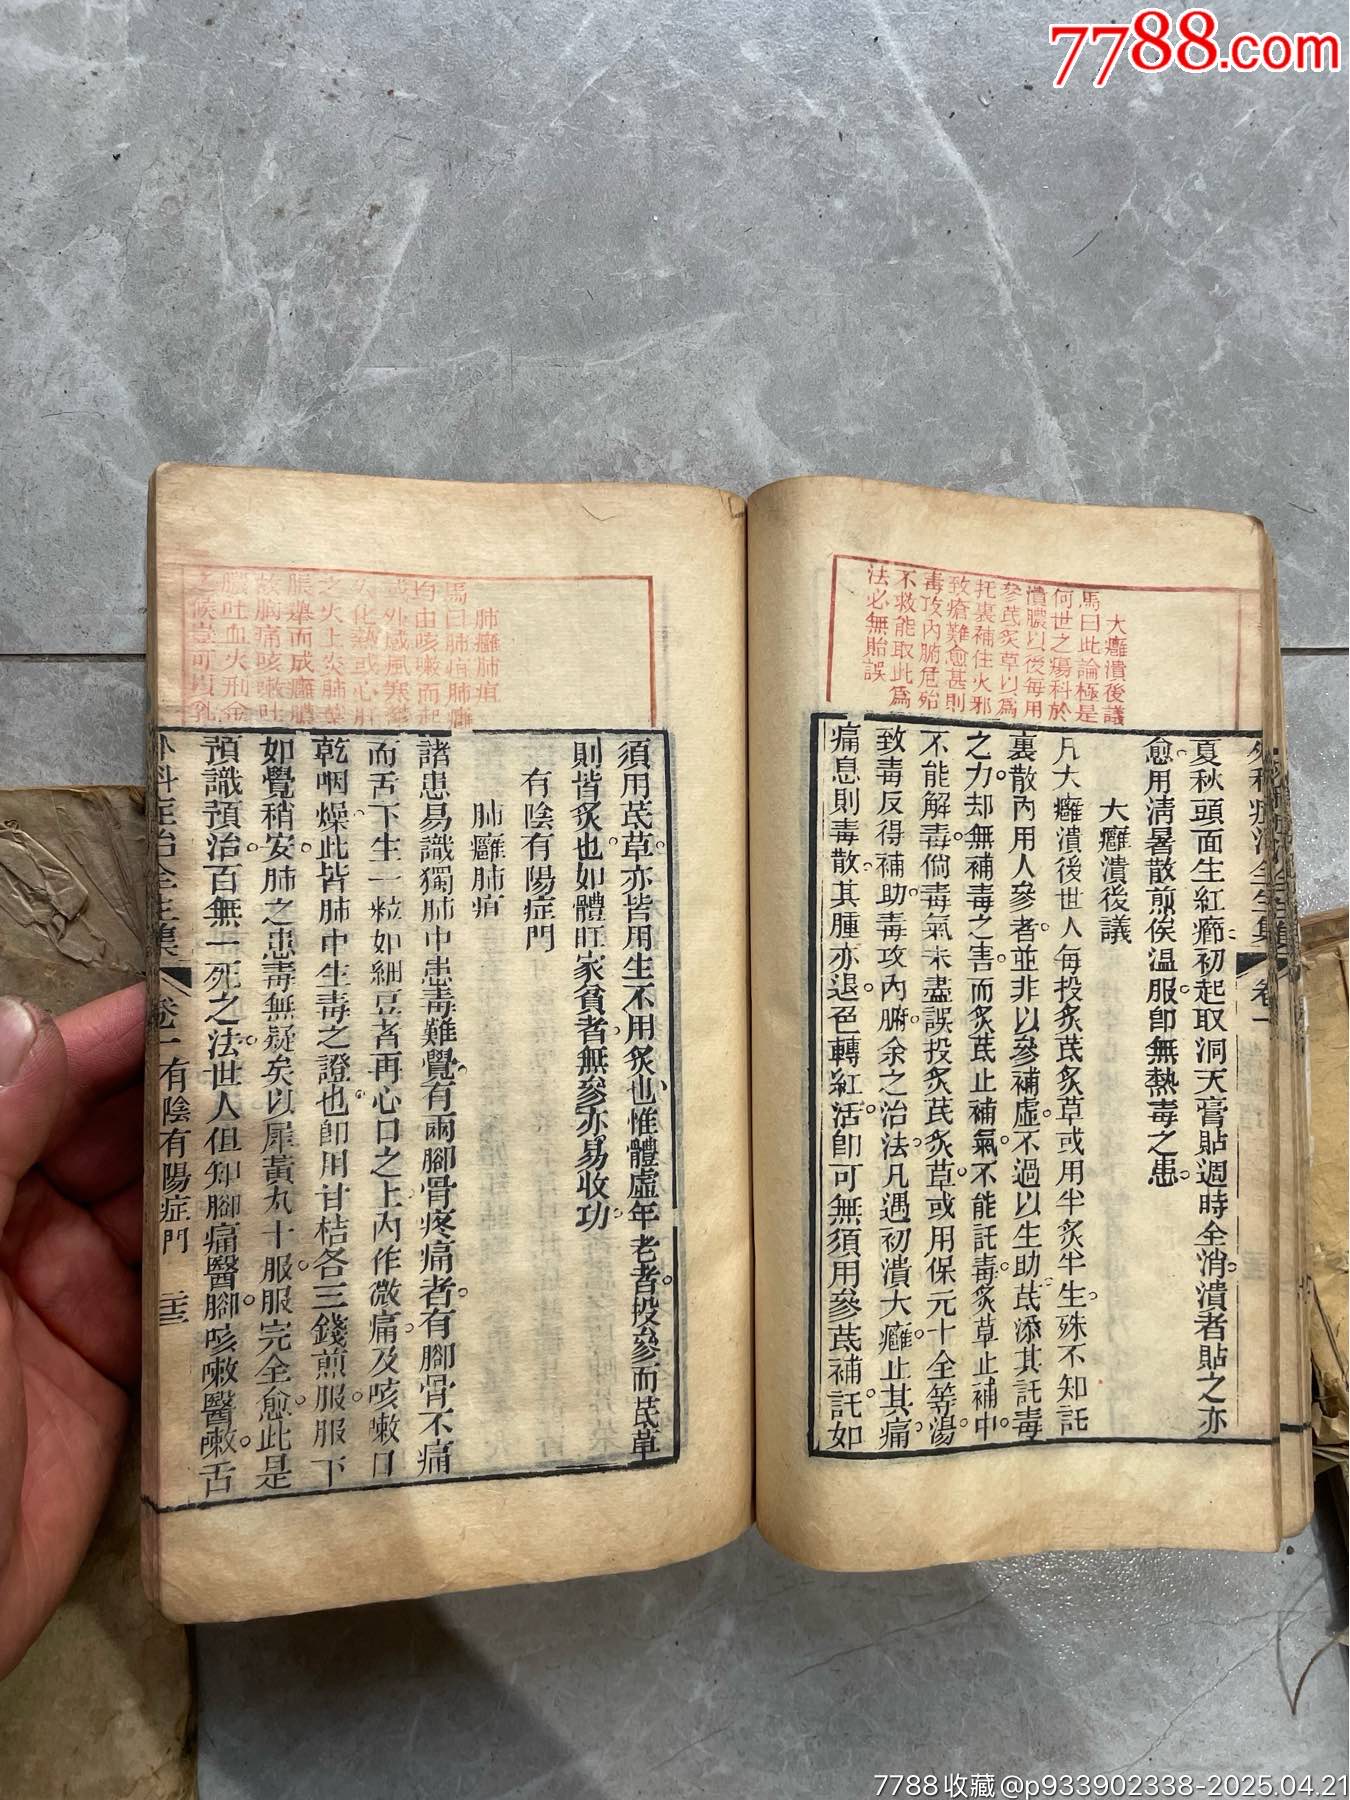 7788.com
大癰潰後議
馬曰此論極是
何世之瘍科於
潰膿以後每用
參芪炙草以爲
托裏補住火邪
致瘡難愈甚則
毒攻內腑危殆
不救能取此爲
法必無貽誤
夏秋頭面生紅癤初起取洞天膏貼週時全消潰者貼之亦
愈用淸暑散煎俟温服卽無熱毒之患
大癰潰後議
凡大癰潰後世人每投炙芪炙草或用半炙半生殊不知託
裏散內用人參者並非以參補虛不過以生助芪添其託毒
之力却無補毒之害而炙芪止補氣不能託毒炙草止補中
不能解毒倘毒氣未盡誤投炙芪炙草或用保元十全等湯
致毒反得補助毒攻內腑余之治法凡遇初潰大癰止其痛
痛息則毒散其腫亦退色轉紅活卽可無須用參芪補託如
肺癰肺疽
馬曰肺疽肺癰
均由咳嗽而起
或外感風寒
化熱或心肝
之火上炎肺葉
脹舉而成癰膿
故胸痛咳嗽吐
膿吐血火刑金
之候豈可
須用芪草亦皆用生不用炙也惟體虛年老者投參而芪草
則皆炙也如體旺家貧者無參亦易收功
有陰有陽症門
肺癰肺疽
諸患易識獨肺中患毒難覺有兩腳骨疼痛者有腳骨不痛
而舌下生一粒如細豆者再心口之上內作微痛及咳嗽口
乾咽燥此皆肺中生毒之證也卽用甘桔各三錢煎服服下
如覺稍安肺之患毒無疑矣以犀黃丸十服服完全愈此是
預識預治百無一死之法世人但知腳痛醫腳咳嗽醫嗽舌
外科症治全生集 卷一 有陰有陽症門
7788收藏@p933902338-2025.04.21